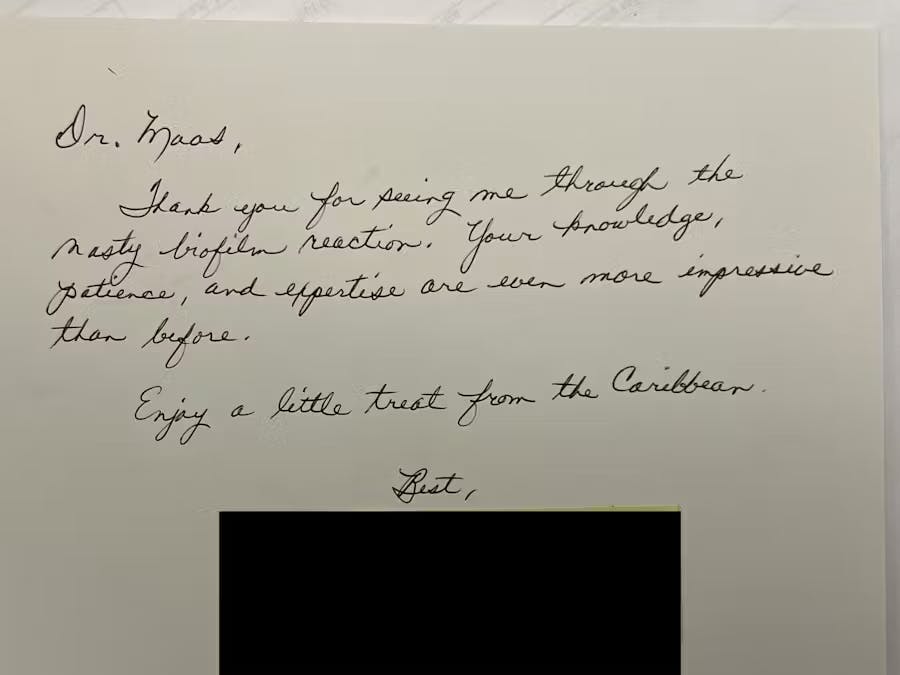 Dr. Maas,
Thank you for seeing me through the
nasty biofilm reaction. Your knowledge,
patience, and expertise are even more impressive
than before.
Enjoy a little treat from the Caribbean.
Best,